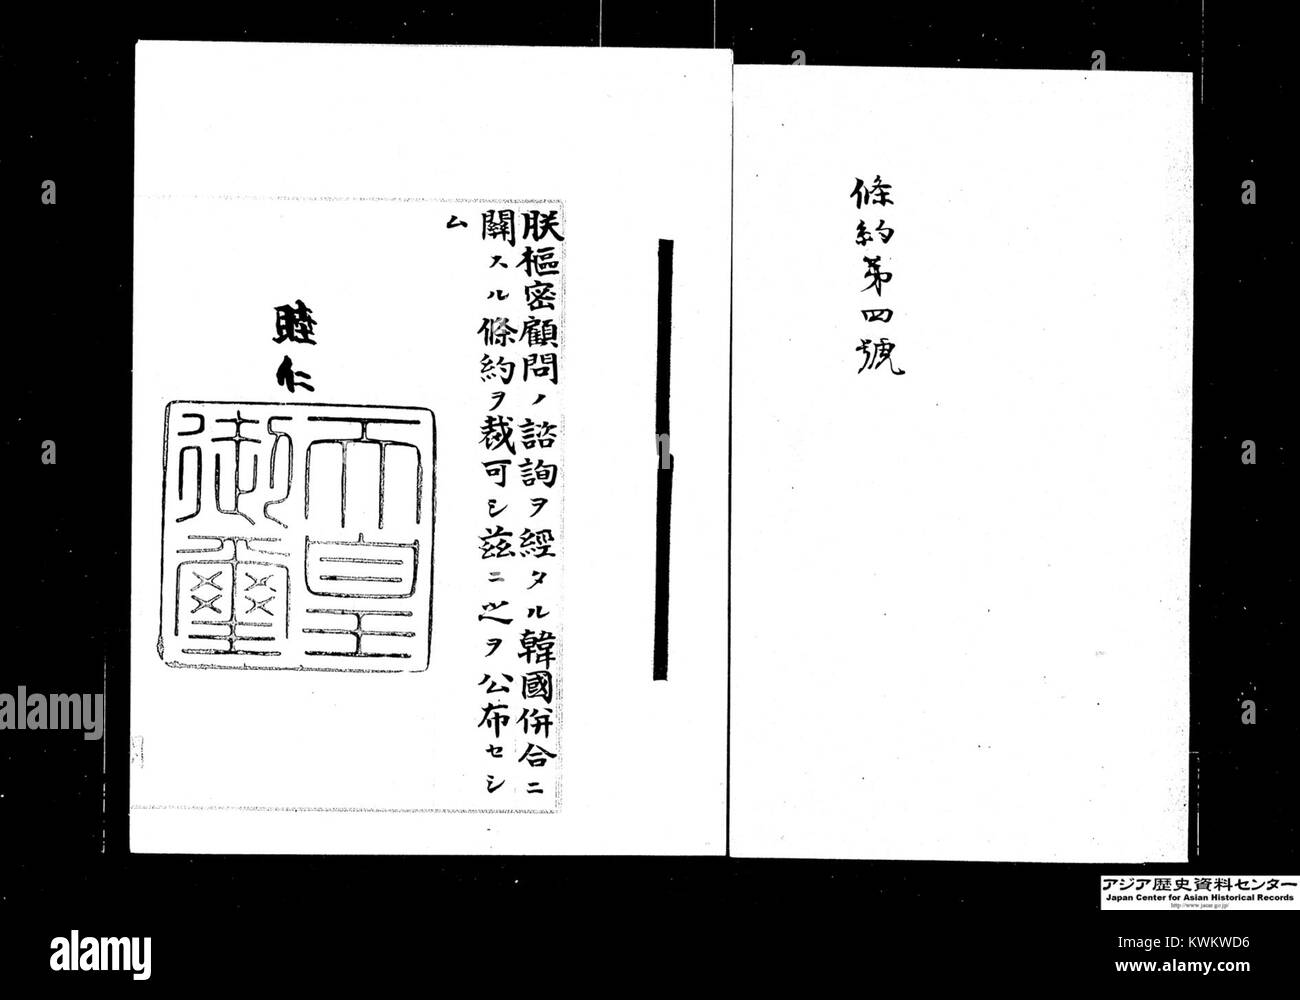 條約第四號
朕樞密顧問ノ諮詢ヲ經タル韓國併合ニ
關スル條約ヲ裁可シ茲ニ之ヲ公布セシ
ム
睦仁
天皇
御璽
アジア歴史資料センター
Japan Center for Asian Historical Records
http://www.jacar.go.jp/
a
a
a
a
a
a
alamy
alamy stock photo
KWKWD6
www.alamy.com